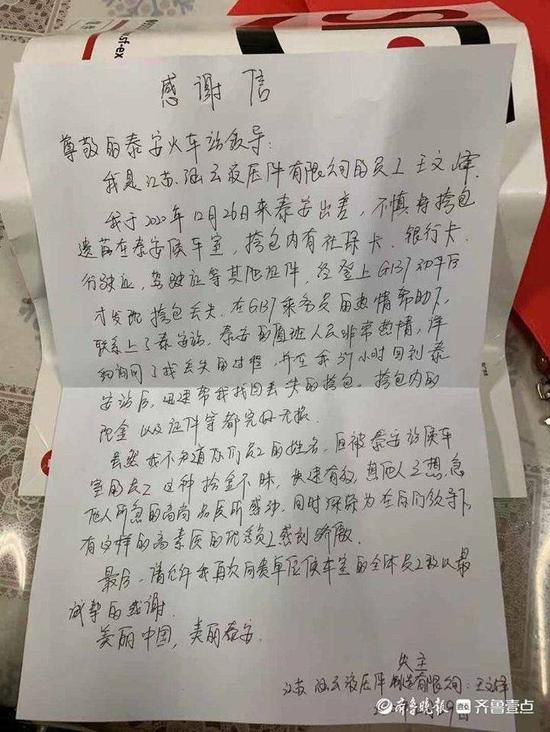 感谢信
尊敬的泰安火车站领导：
我是江苏 液压件有限公司的员工 王文峰.
我于2020年12月26日来泰安出差，不慎将挎包
遗落在泰安候车室，挎包内有社保卡、银行卡、
行驶证、驾驶证等其他证件，经登上G137动车后
才发现挎包丢失，在G137乘务员的热情帮助下，
联系上了泰安站，泰安的值班人员非常热情，详
细询问了我丢失的过程，并在我 小时回到泰
安站后，迅速帮我找回丢失的挎包，挎包内的
现金以及证件等都完好无损.
虽然我不知道你们员工的姓名，但被泰安站候车
室的员工这种拾金不昧，快速有效，想他人之想，急
他人所急的高尚品质所感动，同时深深为在你们领导下
有这样的高素质的优秀员工感到骄傲.
最后，请允许我再次向贵单位候车室的全体员工致以最
诚挚的感谢.
美丽中国，美丽泰安.
失主
江苏 液压件制造有限公司：王文峰
齐鲁晚报 齐鲁壹点